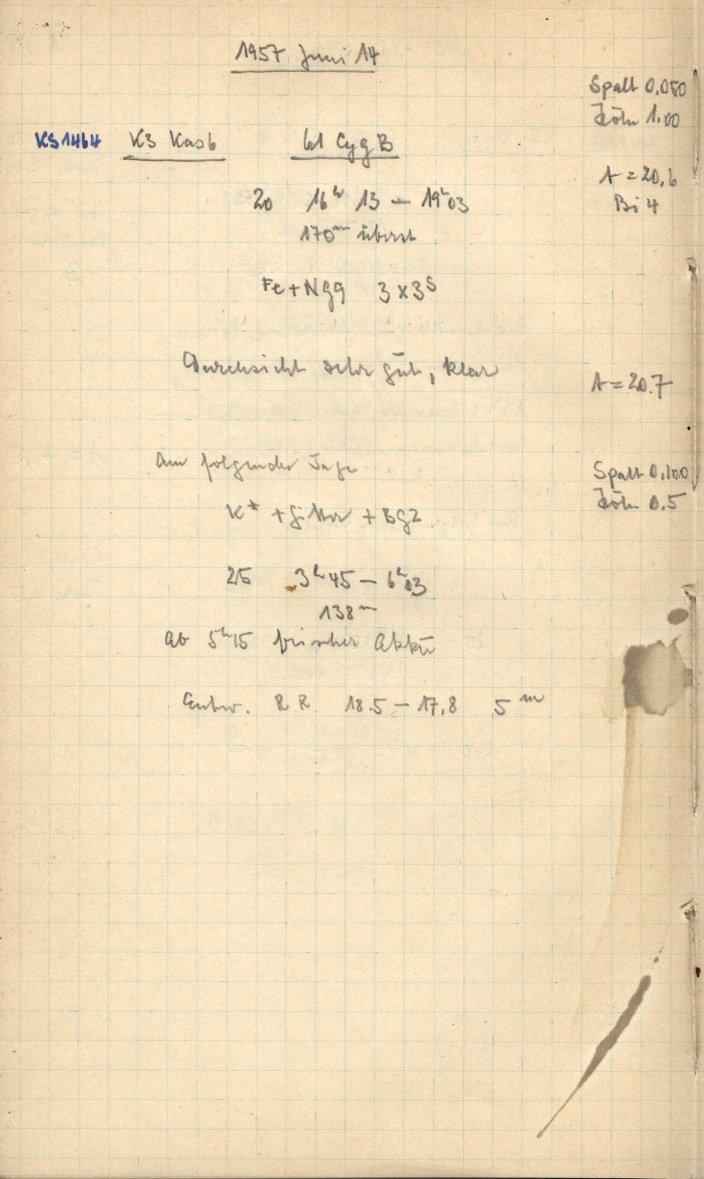 1957 Juni 14
Spalt 0.080
Höhe 1.00
KS1464 K3 Kas6 61 Cyg B
A = 20.6
Bi 4
20 16h 13 – 19h03
170m überst
Fe + Ng9 3 x 3s
Durchsicht sehr gut, klar
A = 20.7
Am folgenden Tage
Spalt 0.100
Höhe 0.5
K* + Gitter + Bg2
25 3h45 – 6h03
138m
ab 5h15 frischer Akku
Entw. R R 18.5 – 17.8 5m